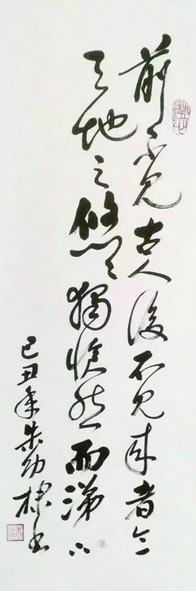 前不見古人後不見來者念
天地之悠々獨愴然而涕下
己丑年朱幼棣书